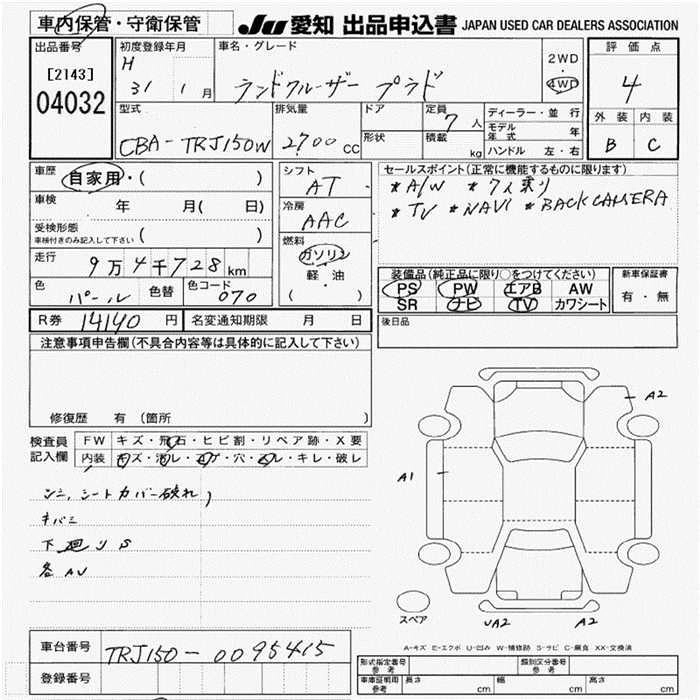 車内保管・守衛保管
JU 愛知 出品申込書 JAPAN USED CAR DEALERS ASSOCIATION
出品番号
[2143]
04032
初度登録年月
H 31 1月
車名・グレード
ランドクルーザー プラド
2WD
4WD
評価点
4
外装 内装
B C
型式
CBA-TRJ150W
排気量
2700 CC
ドア
形状
定員
7人
積載
kg
ディーラー・並行
モデル年式 年
ハンドル 左・右
車歴
自家用・( )
車検
年 月( 日)
受検形態
車検付きのみ記入して下さい ( )
走行
9万4千728km
色
パール
色替
色コード
070
シフト
AT
冷房
AAC
燃料
ガソリン
軽油
( ・ )
セールスポイント(正常に機能するものに限ります)
*A/W *7人乗り
*TV *NAVI *BACK CAMERA
装備品(純正品に限り○をつけてください)
PS PW エアB AW
SR ナビ TV カワシート
新車保証書
有・無
R券 14140円
名変通知期限 月 日
後日品
注意事項申告欄(不具合内容等は具体的に記入して下さい)
修復歴 有 (箇所 )
検査員記入欄
FW キズ・飛石・ヒビ割・リペア跡・X要
内装 キズ・汚レ・コゲ・穴・スレ・キレ・破レ
シートカバー破れ
キバミ
下廻りS
各AU
A2
A1
スペア
UA2
A2
A-キズ E-エクボ U-凹み W-補修跡 S-サビ C-腐食 XX-交換済
車台番号
TRJ150-0095415
登録番号
形式指定番号
参考
類別区分番号
参考
車庫証明用
参考
長さ cm
幅 cm
高さ cm